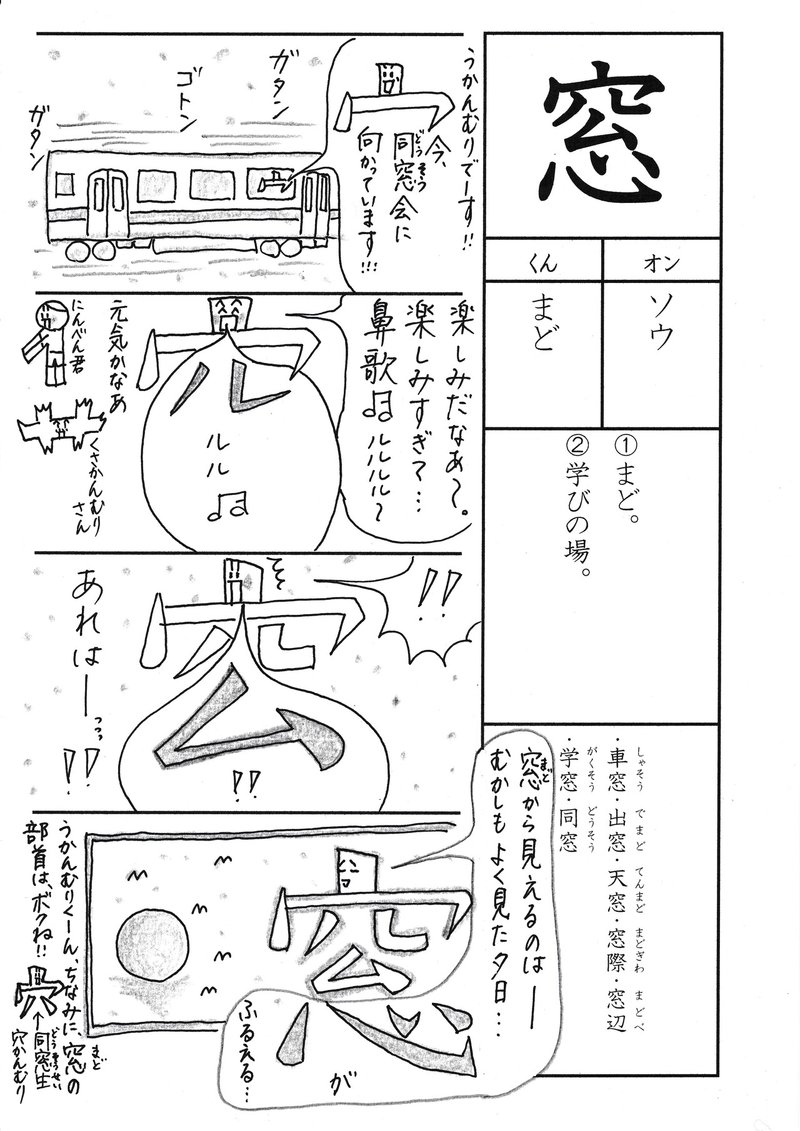 窓
オン
くん
ソウ
まど
①まど。
②学びの場。
・車窓・出窓・天窓・窓際・窓辺
しゃそう でまど てんまど まどぎわ まどべ
・学窓・同窓
がくそう どうそう
うかんむりでーす!!
今、
同窓会に
どうそう
向かっています!!!
ガタン
ゴトン
ガタン
楽しみだなあ〜。
楽しみすぎて…
鼻歌♫ルルルル〜
ル
ルル♫
元気かなあ
にんべん君
くさかんむり
さん
!!
ム
!!
あれはーっっ!!
窓から見えるのはー
まど
むかしもよく見た夕日…
心
が
ふるえる…
うかんむりくーん、ちなみに、窓の
まど
部首は、ボクね!!
穴
←同窓生
どうそうせい
穴かんむり